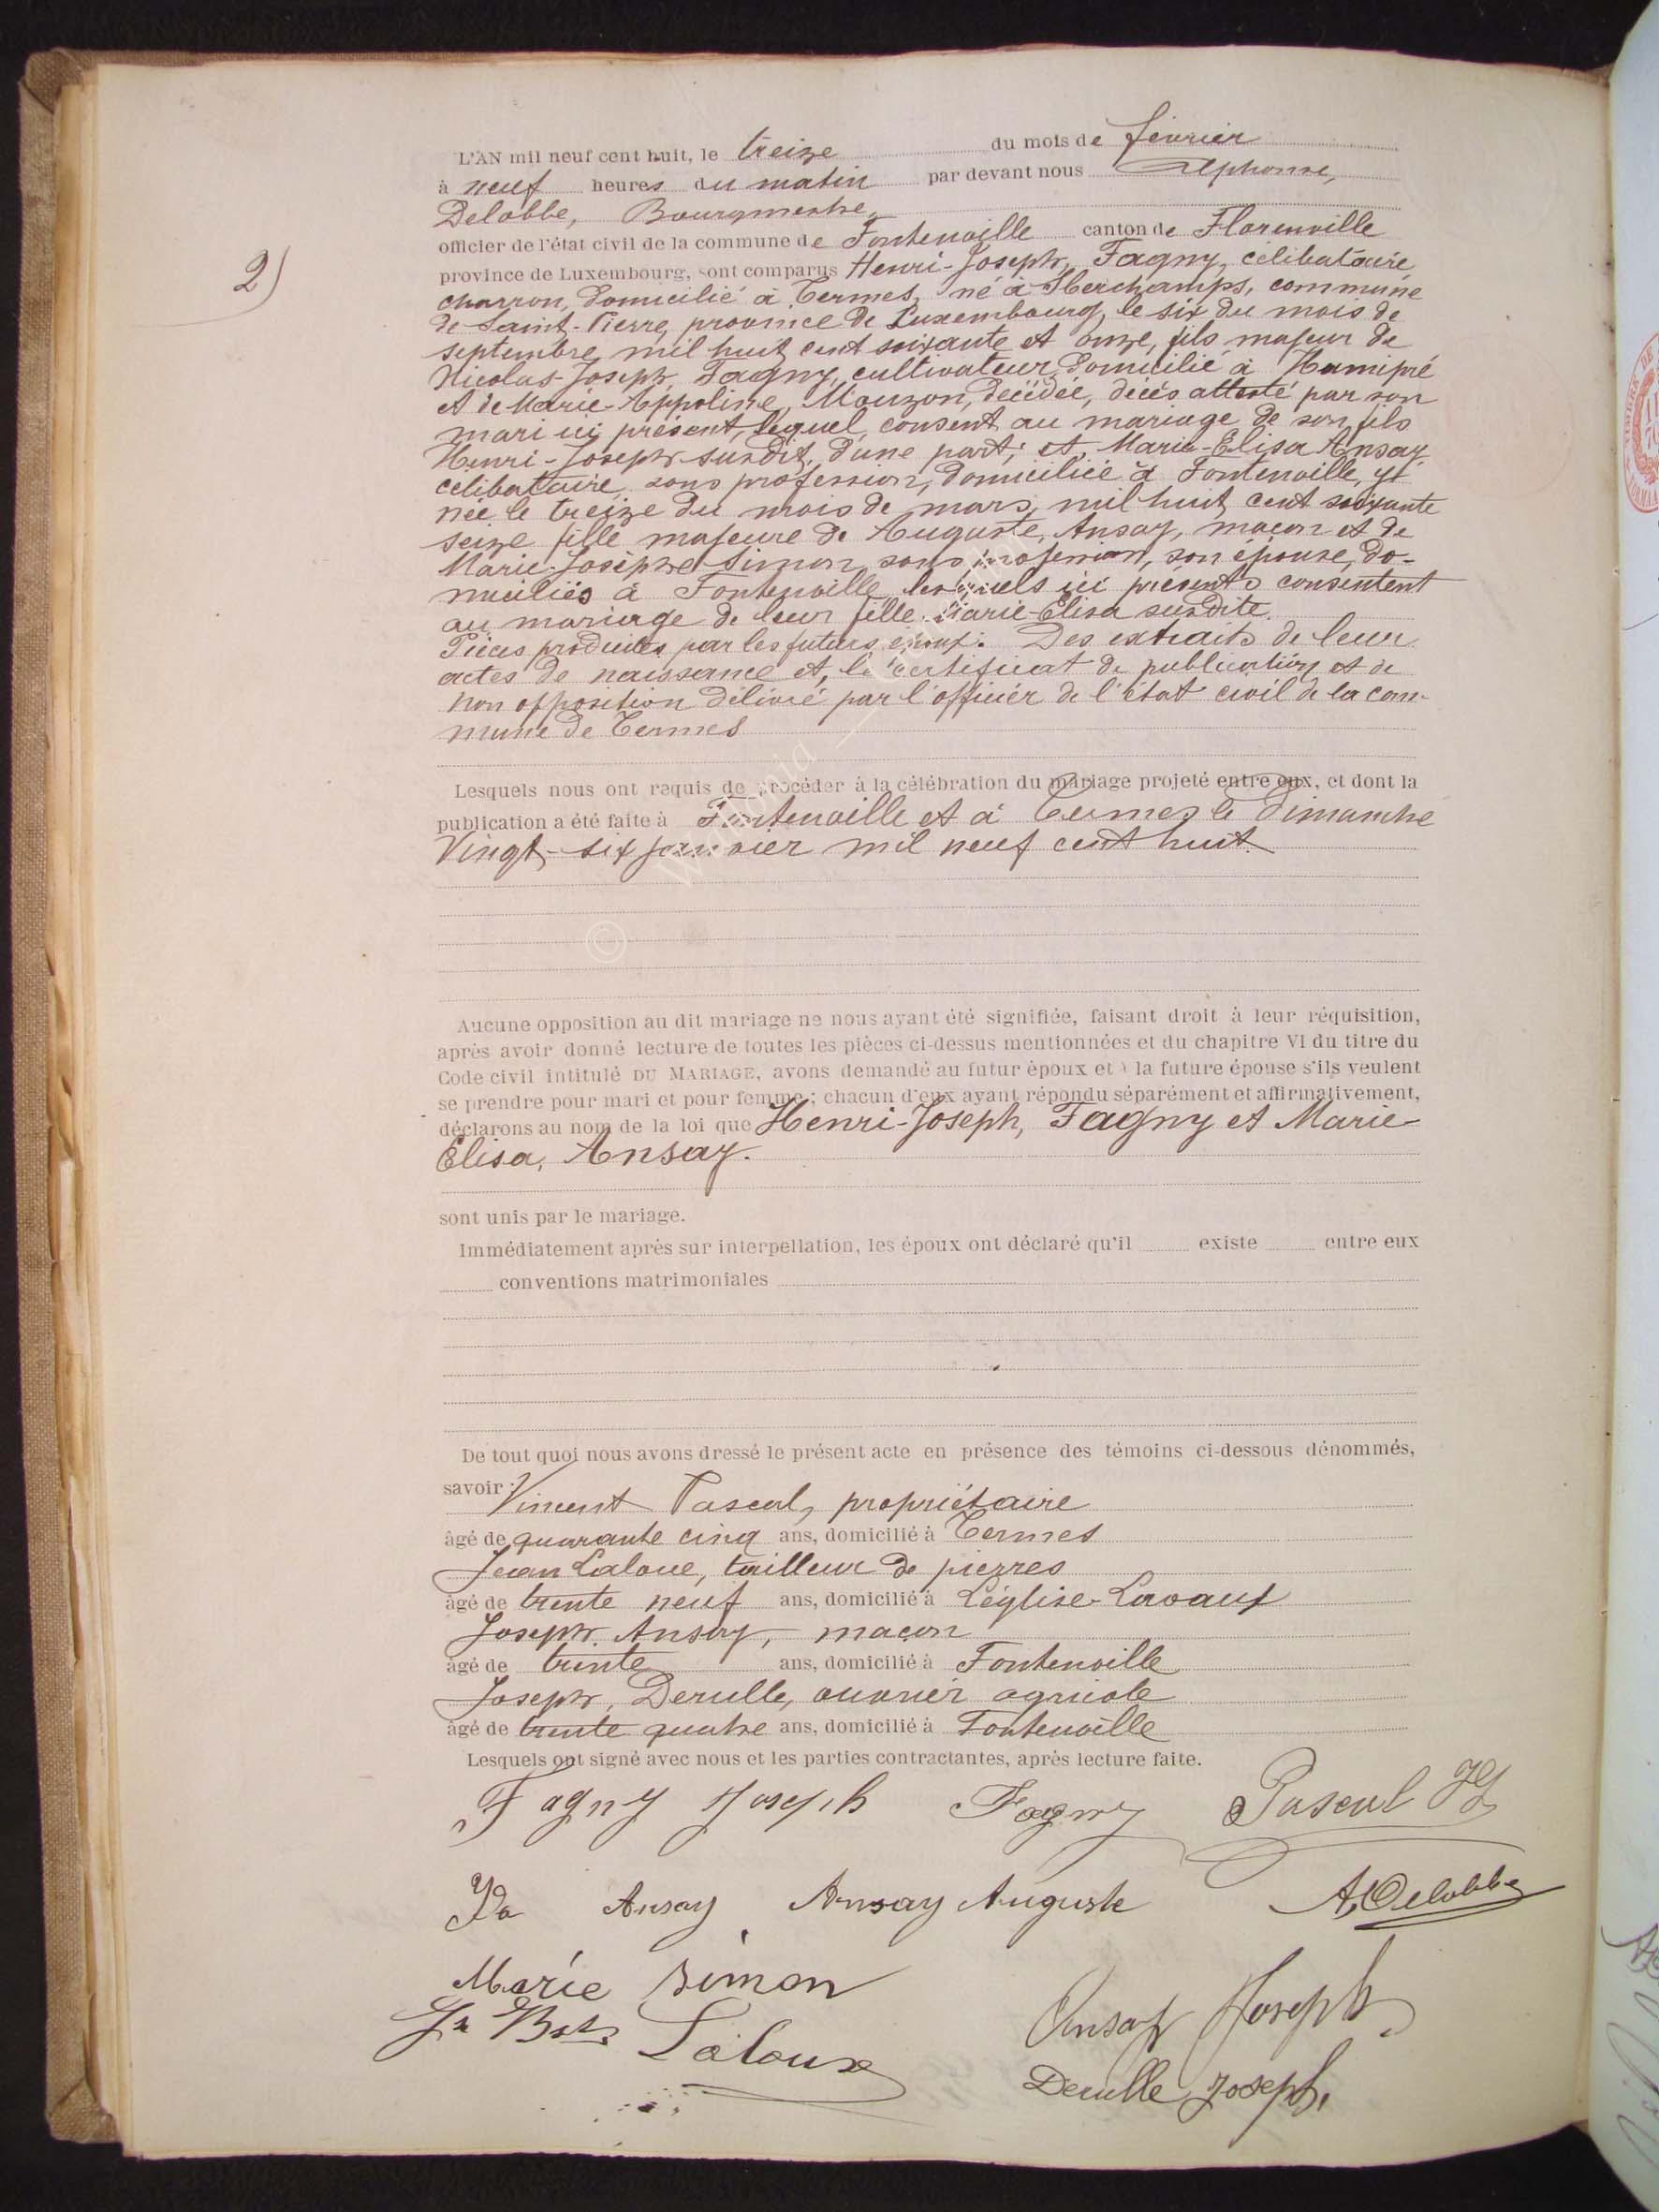 L'AN mil neuf cent huit, le treize du mois de février
à neuf heures du matin par devant nous Alphonse,
Delobbe, Bourgmestre,
officier de l'état civil de la commune de Fontenoille canton de Florenville
2)
province de Luxembourg, sont comparus Henri-Joseph, Fagny, célibataire,
charron, domicilié à Termes, né à Sberchamps, commune
de Saint-Pierre, province de Luxembourg, le six du mois de
septembre mil huit cent soixante et onze, fils majeur de
Nicolas-Joseph, Fagny, cultivateur, domicilié à Hamipré
et de Marie-Appoline, Mouzon, décédée, décès attesté par son
mari ici présent, lequel consent au mariage de son fils
Henri-Joseph susdit, d'une part; et, Marie-Elisa Ansay
célibataire, sans profession, domiciliée à Fontenoille, y
née le treize du mois de mars, mil huit cent soixante
seize fille majeure de Auguste, Ansay, maçon et de
Marie-Josèphe Simon, sans profession, son épouse, do-
miciliés à Fontenoille lesquels ici présents consentent
au mariage de leur fille Marie-Elisa susdite.
Pièces produites par les futurs époux: Des extraits de leur
actes de naissance et, le certificat de publication et de
non opposition délivré par l'officier de l'état civil de la com-
mune de Termes
Lesquels nous ont requis de procéder à la célébration du mariage projeté entre eux, et dont la
publication a été faite à Fontenoille et à Termes le dimanche
Vingt-six janvier mil neuf cent huit.
©
Aucune opposition au dit mariage ne nous ayant été signifiée, faisant droit à leur réquisition,
après avoir donné lecture de toutes les pièces ci-dessus mentionnées et du chapitre VI du titre du
Code civil intitulé DU MARIAGE, avons demandé au futur époux et à la future épouse s'ils veulent
se prendre pour mari et pour femme; chacun d'eux ayant répondu séparément et affirmativement,
déclarons au nom de la loi que Henri-Joseph, Fagny et Marie-
Elisa, Ansay.
sont unis par le mariage.
Immédiatement après sur interpellation, les époux ont déclaré qu'il existe entre eux
conventions matrimoniales
De tout quoi nous avons dressé le présent acte en présence des témoins ci-dessous dénommés,
savoir: Vincent Pascal, propriétaire
âgé de quarante cinq ans, domicilié à Termes
Jean Laloue, tailleur de pierres
âgé de trente neuf ans, domicilié à Léglise-Lavaux
Joseph Ansay, maçon
âgé de trente ans, domicilié à Fontenoille
Joseph, Derulle, ouvrier agricole
âgé de trente quatre ans, domicilié à Fontenoille
Lesquels ont signé avec nous et les parties contractantes, après lecture faite.
Fagny Joseph Fagny Pascal
Ansay Ansay Auguste A, Delobbe
Marie Simon
Ansay Joseph
Laloux
Derulle Joseph,